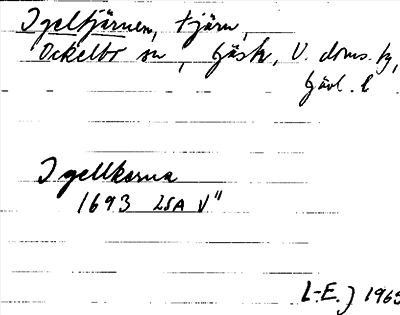 Igeltjärnen, tjärn,
Ockelbo sn, Gästr, V. doms. tg,
Gävl. l
Igellkerna
1693 LSA V"
L-E.J 1965